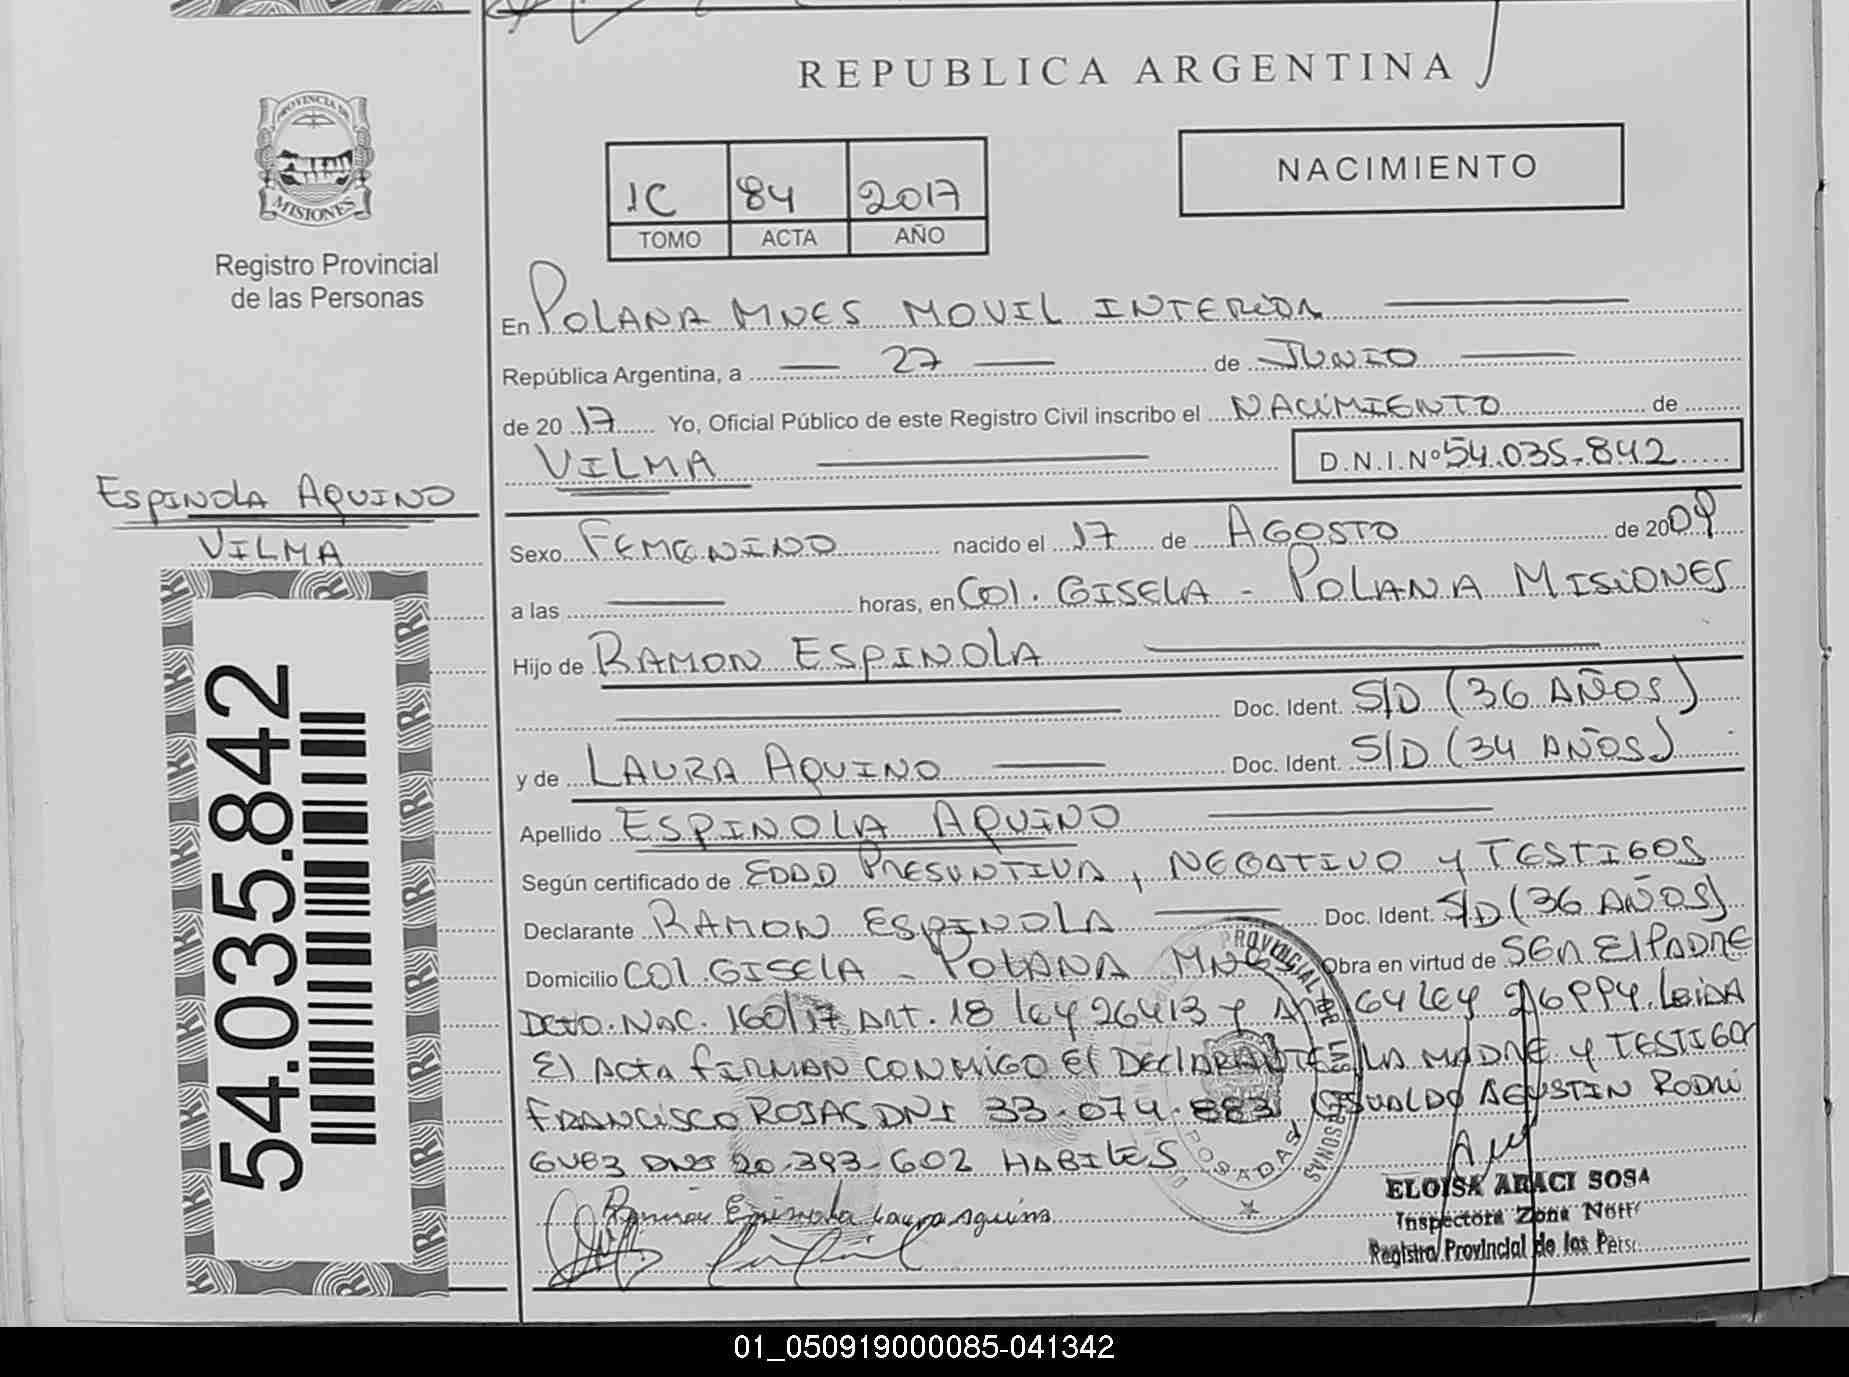 REPUBLICA ARGENTINA
PROVINCIA DE
MISIONES
Registro Provincial
de las Personas
1C 84 2017
TOMO ACTA AÑO
NACIMIENTO
En POLANA MNES MOVIL INTERIOR
República Argentina, a 27 de JUNIO
de 2017 Yo, Oficial Público de este Registro Civil inscribo el NACIMIENTO de
VILMA D.N.I.Nº 54.035.842
ESPINOLA AQUINO
VILMA
54.035.842
Sexo FEMENINO nacido el 17 de AGOSTO de 2009
a las horas, en COL. GISELA - POLANA MISIONES
Hijo de RAMON ESPINOLA
Doc. Ident. S/D (36 AÑOS)
y de LAURA AQUINO Doc. Ident. S/D (34 AÑOS)
Apellido ESPINOLA AQUINO
Según certificado de EDAD PRESUNTIVA, NEGATIVO Y TESTIGOS
Declarante RAMON ESPINOLA Doc. Ident. S/D (36 AÑOS)
Domicilio COL. GISELA - POLANA MNES Obra en virtud de SER El PADRE
DCTO. NAC. 160/17 ART. 18 ley 26413 y Art 64 ley 26994. LeiDA
El ACTA fiRMAN CONMIGO El DEClARANTE, LA MADRE y TESTIGOS
FRANCISCO ROJAS DNI 33.074.883 OSVALDO AGUSTIN RODRI
GUEZ DNI 20.393.602 HABILES
Ramón Espinola Laura aquino
PROVINCIAL DE LAS PERSONAS
POSADAS
ELOISA ARACI SOSA
Inspectora Zona Norte
Registro Provincial de las Pers.
01_050919000085-041342